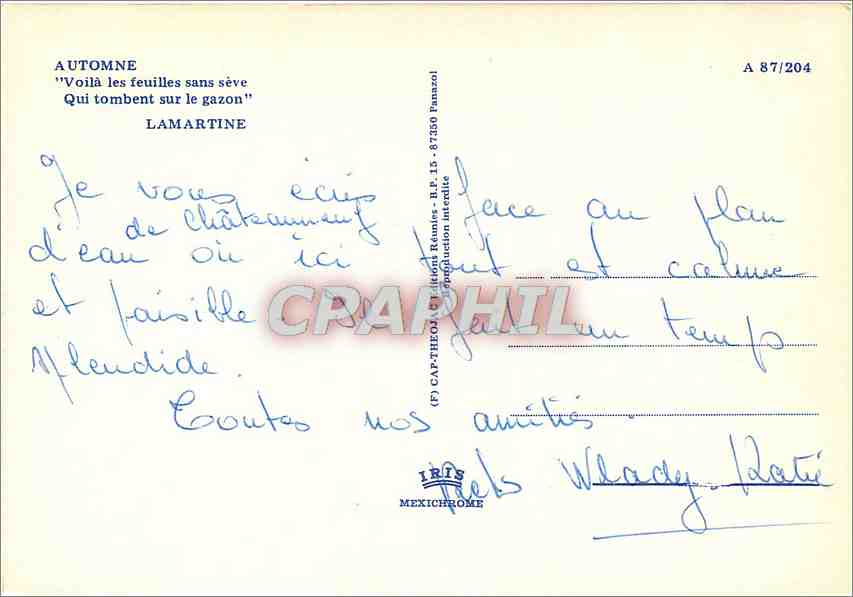 AUTOMNE
"Voilà les feuilles sans sève
Qui tombent sur le gazon"
LAMARTINE
A 87/204
Je vous écris face au plan
de Châteauneuf
d'eau où ici tout est calme
et paisible. Il fait un temp
splendide.
Toutes nos amitiés.
Wlady. Katie
(F) CAP-THEOJAC Editions Réunies - B.P. 15 - 87350 Panazol
Reproduction interdite
CPARPHIL
IRIS
MEXICHROME